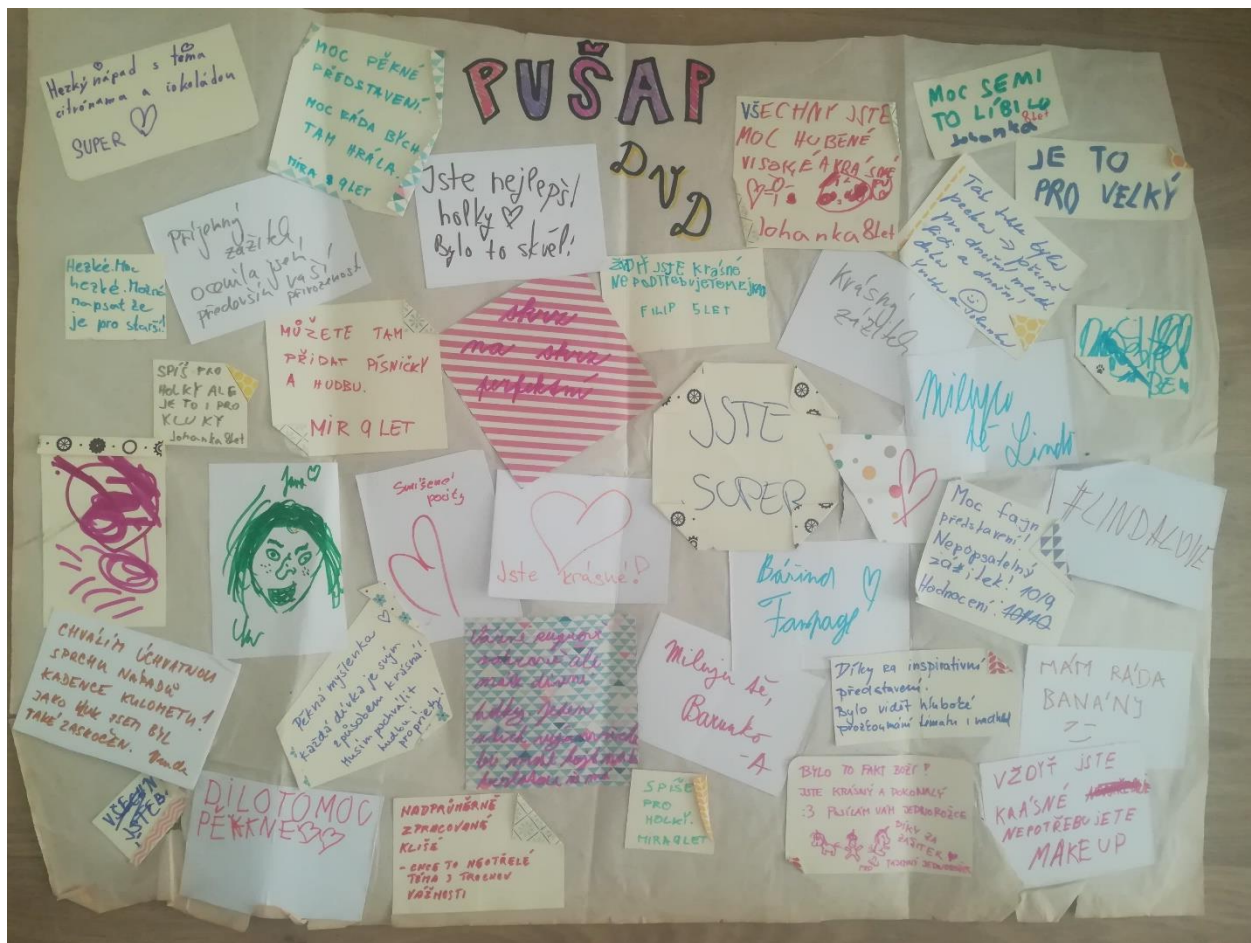 PUŠAP
DVD
Hezký nápad s těma
citrónama a čokoládou
SUPER
MOC PĚKNÉ
PŘEDSTAVENÍ.
MOC RÁDA BYCH
TAM HRÁLA.
MÍRA 9 LET
Jste nejlepší
holky
Bylo to skvěl!
VŠECHNY JSTE
MOC HUBENÉ
VISOKÉ A KRÁSNÉ
Johanka 8 let
MOC SEMI
TO LÍBILO
Johanka 8 let
JE TO
PRO VELKÝ
Příjemný
zážitek,
ocenila jsem
především vaší
přirozenost
Hezké. Moc
hezké. Možná
napsat že
je pro starší!
MŮŽETE TAM
PŘIDAT PÍSNIČKY
A HUDBU.
MÍR 9 LET
skrz
na skrz
perfektní
JSTE Krásné
FILIP 5 LET
Krásný
zážitek
Tak tohle byla
pecka => přesně
pro dnešní mladé
lidi a dnešní
dobu
SPÍŠ PRO
HOLKY ALE
JE TO I PRO
KLUKY
Johanka 8 let
JSTE
SUPER
Miluju
tě Lindo
Smíšené
pocity
Jste krásné!
Moc fajn
představení!
Nepopsatelný
zážitek! 10/9
Hodnocení:
#LINDALOVE
Bářina
Fanpage
CHVÁLÍM ÚCHVATNOU
SPRCHU NÁPADŮ
KADENCE KULOMETU!
JAKO KLUK JSEM BYL
TAKÉ ZASKOČEN.
Pěkná myšlenka
každá dívka je svým
způsobem krásná!
Musím pochválit
hudbu i
propriety!
Miluju tě,
Barunko
-A
Díky za inspirativní
představení.
Bylo vidět hluboké
prozkoumání tématu i nadhled
MÁM RÁDA
BANÁNY
DÍLO TO MOC
PĚKNÉ
NADPRŮMĚRNĚ
ZPRACOVANÉ
KLIŠÉ
- CHCE TO NEOTŘELÉ
TÉMA S TROCHOU
VÁŽNOSTI
SPÍŠE
PRO
HOLKY.
MIRA 9 LET
BYLO TO FAKT BOŽÍ!
JSTE KRÁSNÝ A DOKONALÝ
:3 POSÍLÁM VÁM JEDNOROŽCE
DÍKY ZA
ZÁŽITEK
VŽDYŤ JSTE
KRÁSNÉ
NEPOTŘEBUJETE
MAKE UP